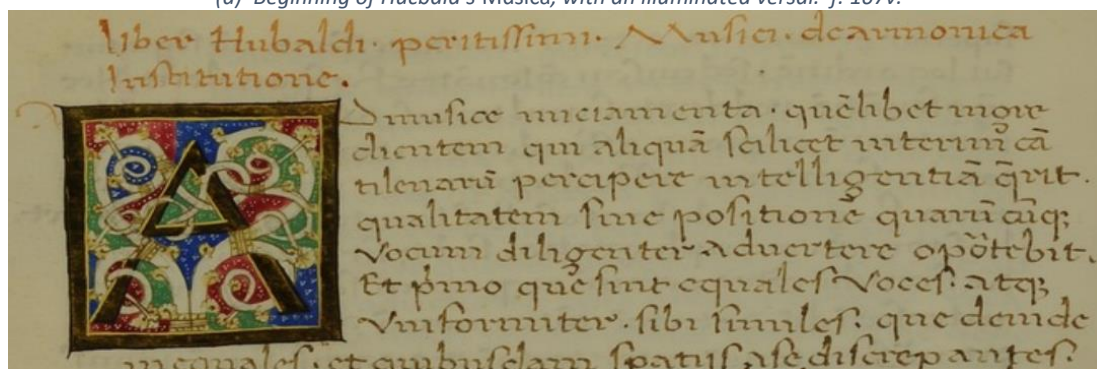 (a) Beginning of Hucbald's Musica, with an illuminated versal. f. 167v.
liber Hubaldi · peritissimi · Musici · de armonica
Institutione.
AD musice iniciamenta · quēlibet more
clientem qui aliquā scilicet interim cā
tilenarū percipere intelligentiā q̄rit ·
qualitatem siue positionē quarūcūq;
vocum diligenter advertere opōtebit.
Et p̄mo que sint equales voces · atq;
vniformiter · sibi similes · que deinde
inequales · et quibusdam spatiis a se discrepantes ·